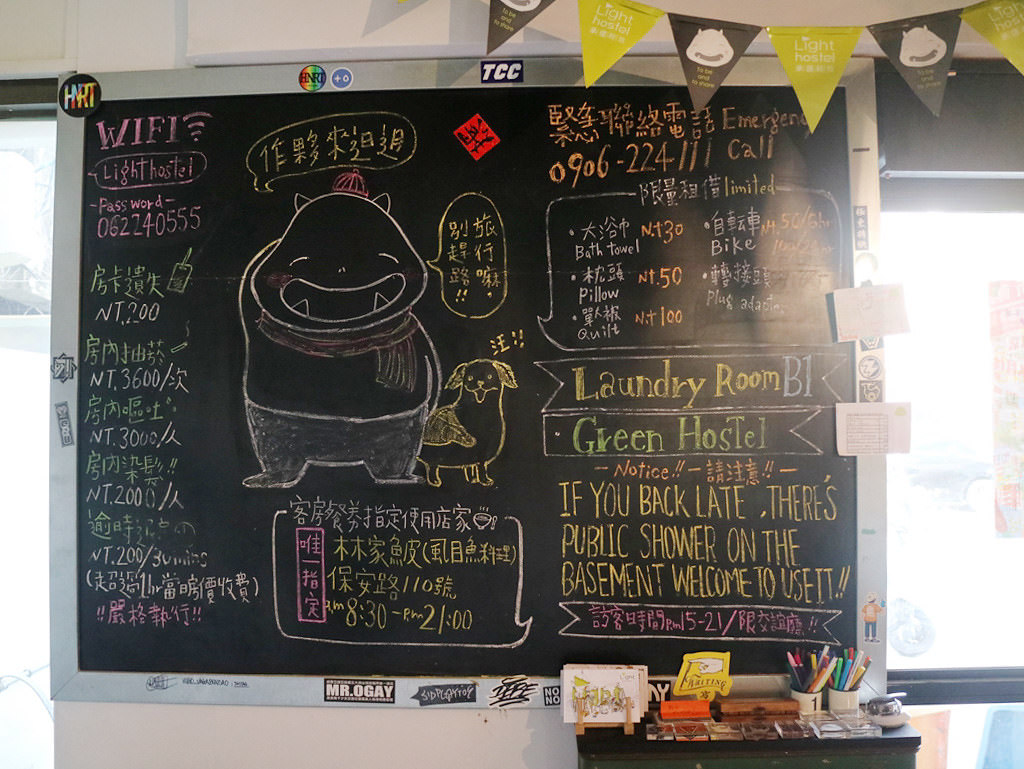 Light hostel
to be and to share
Light hostel
to be and to share
Light hostel
to be and to share
HNRT
HNRT
+0
TCC
WIFI
Lighthostel
-Password-
062240555
房卡遺失
NT.200
房內抽菸
NT.3600/次
房內嘔吐
NT.3000/人
房內染髮!!
NT.2000/人
逾時
NT.200/30mins
(超過1hr當日房價收費)
!!嚴格執行!!
作夥來迌迌
別趕路!!
旅行嘛.
汪!!
客房餐券指定使用店家
唯一指定
林家魚皮(虱目魚料理)
保安路110號
8:30-Pm21:00
緊急聯絡電話 Emergency
0906-224111 Call
限量租借limited
·大浴巾 N.t 30
Bath towel
·枕頭 N.t.50
Pillow
·單人被 N.t 100
Quilt
·自転車
Bike
·轉接頭
Plug
Laundry Room B1
Green Hostel
-Notice!!-請注意!!-
IF YOU BACK LATE, THERE'S
PUBLIC SHOWER ON THE
BASEMENT WELCOME TO USE IT!!
訪客時間Pm15-21/限交誼廳!!
MR.OGAY
NO
NO
Light
1